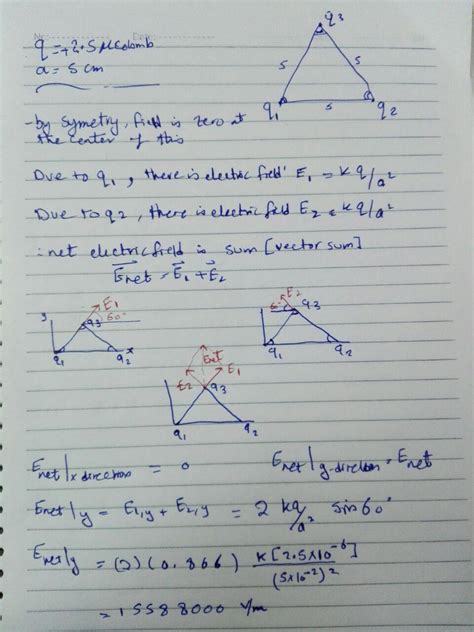 No: Date:
q3
q = +2.5 μColomb
a = 5 cm
5 5
q1 5 q2
- by symetry, field is zero at
the center of this
Due to q1, there is electric field E1 = kq/a²
Due to q2, there is electric field E2 = kq/a²
∴ net electric field is sum [vector sum]
E⃗net = E⃗1 + E⃗2
y E1 q3 60° q1 q2 x
E2 60° q3 q1 q2
Enet E2 E1 q3 q1 q2
Enet|x direction = 0 Enet|y-direction = Enet
Enet|y = E1,y + E2,y = 2 kq/a² sin 60°
Enet|y = (2)(0.866) K[2.5×10⁻⁶]/(5×10⁻²)²
= 15588000 V/m